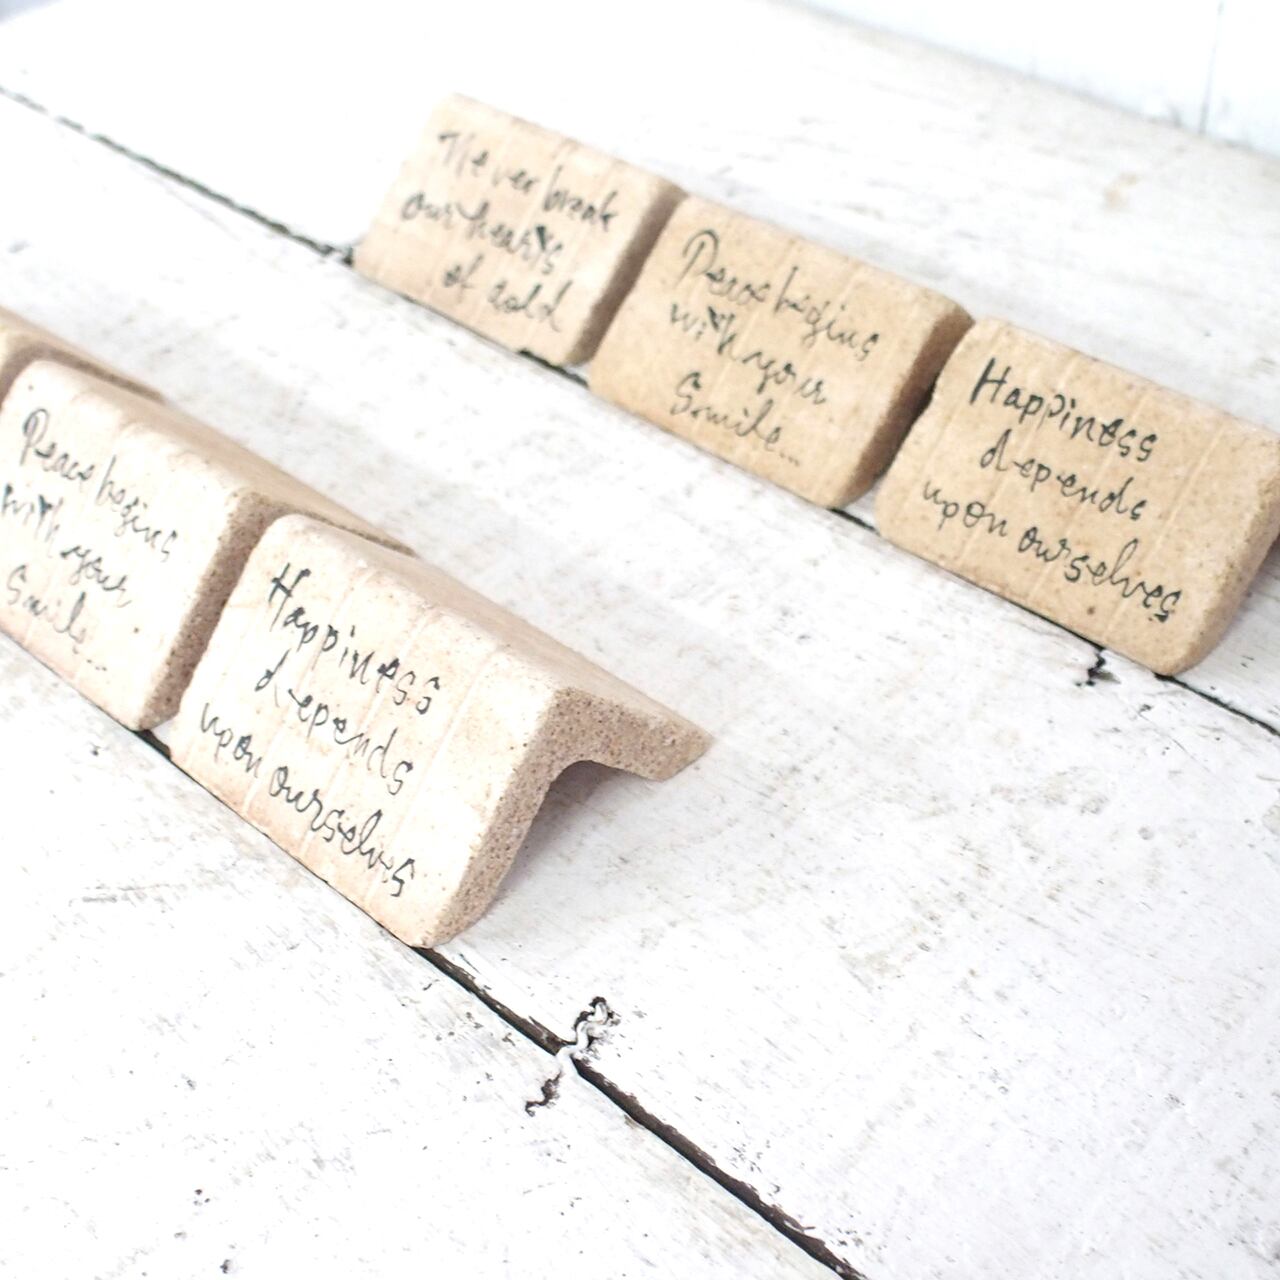 Never break
our hearts
of gold
Peace begins
with your
Smile...
Happiness
depends
upon ourselves
Peace begins
with your
Smile...
Happiness
depends
upon ourselves